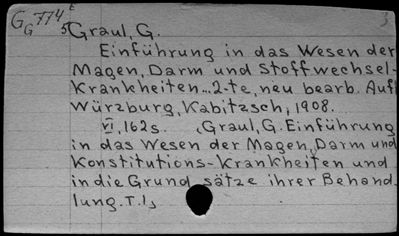 GG 774 t 3
5 Graul, G.
Einführung in das Wesen der
Magen, Darm und Stoffwechsel-
krankheiten... 2-te, neu bearb. Aufl
Würzburg, Kabitzsch, 1908.
VI, 162 s. (Graul, G. Einführung
in das Wesen der Magen, Darm und
Konstitutions-krankheiten und
in die Grund sätze ihrer Behand-
lung. T. 1)